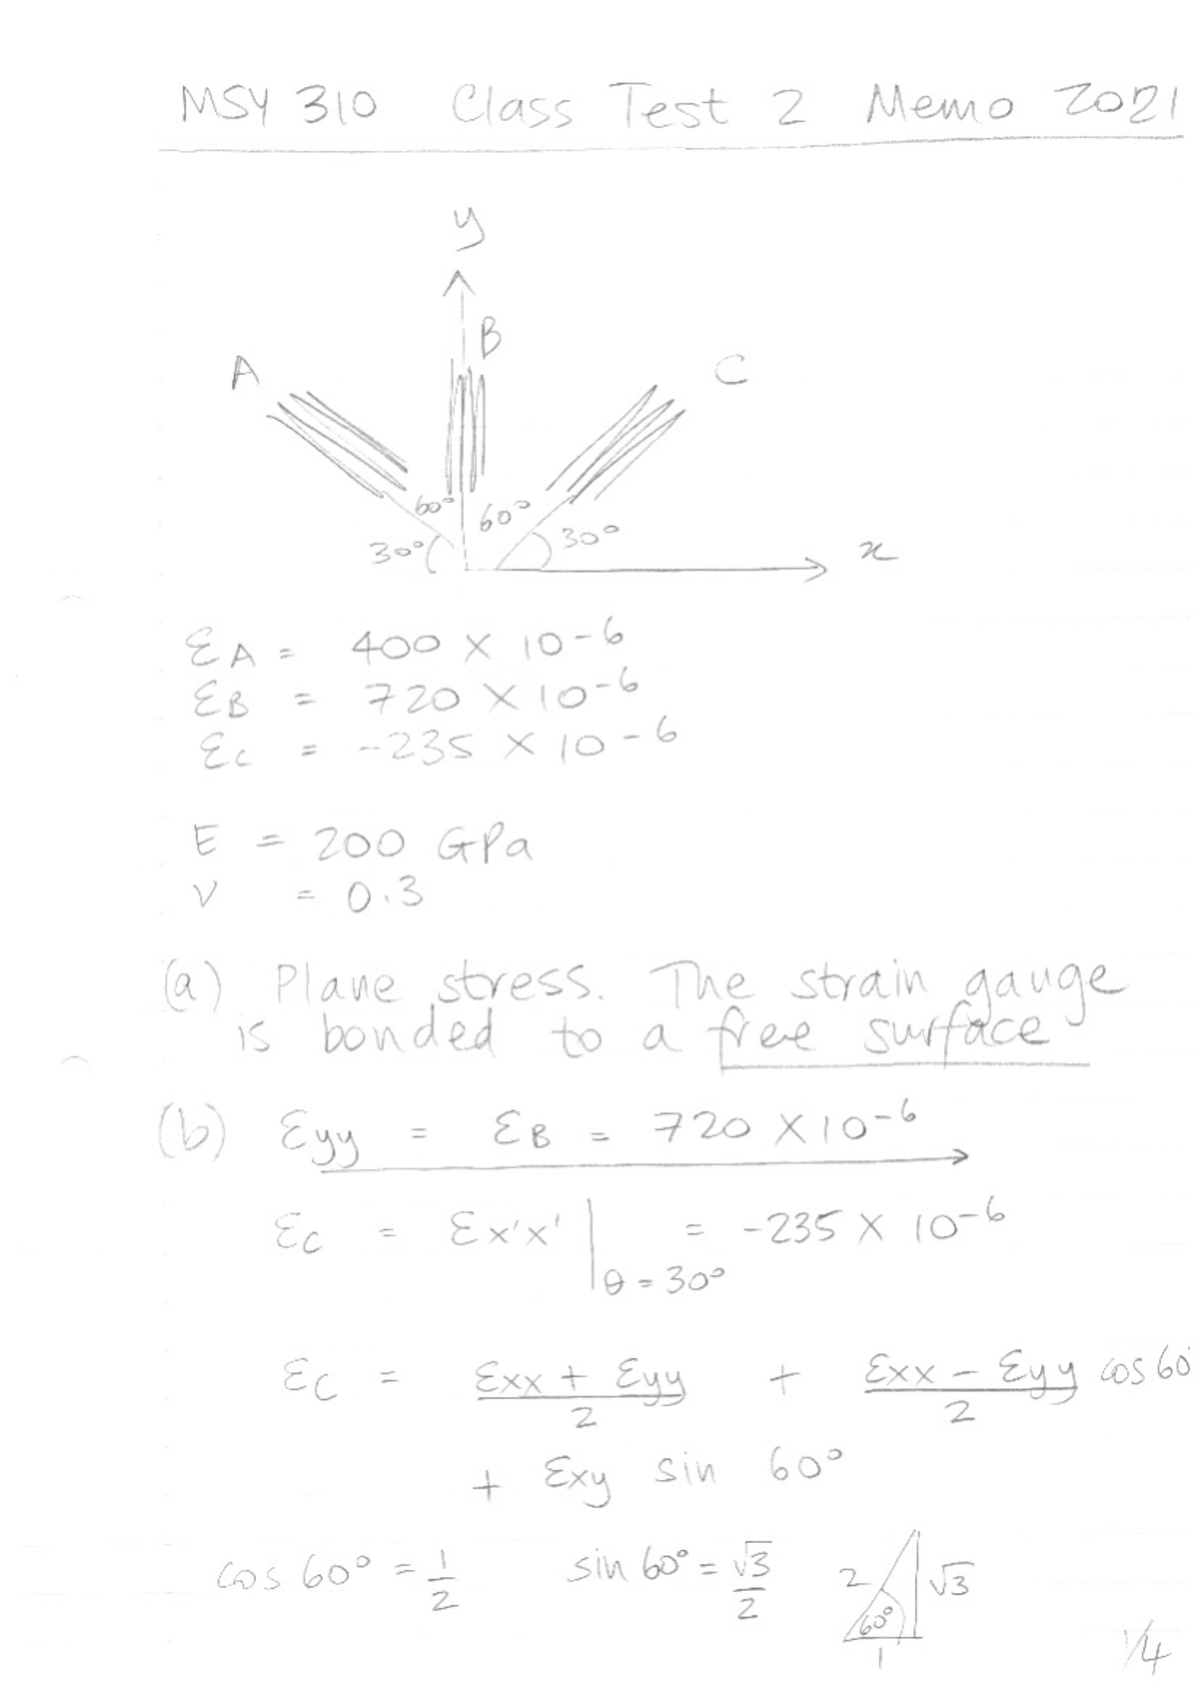 MSY 310 Class Test 2 Memo 2021
y
B
A
C
60°
60°
30°
30°
x
εA = 400 × 10-6
εB = 720 × 10-6
εc = -235 × 10-6
E = 200 GPa
ν = 0.3
(a) Plane stress. The strain gauge
is bonded to a free surface
(b) εyy = εB = 720 × 10-6
εc = εx'x' | θ = 30° = -235 × 10-6
εc = εxx + εyy / 2 + εxx - εyy / 2 cos 60
+ εxy sin 60°
cos 60° = 1/2 sin 60° = √3/2
2
√3
60°
1
1/4